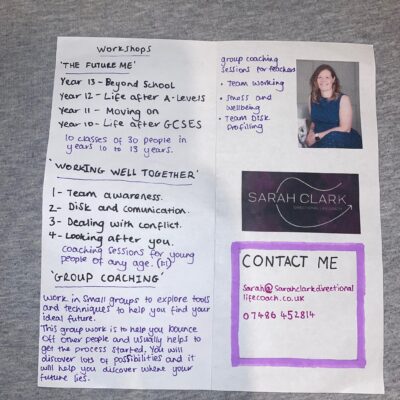 Workshops
'THE FUTURE ME'
Year 13 - Beyond School
Year 12 - Life after A-Levels
Year 11 - Moving on
Year 10 - Life after GCSES
10 classes of 30 people in
years 10 to 13 years.
'WORKING WELL TOGETHER'
1- Team awareness.
2- Disk and comunication.
3- Dealing with conflict.
4- Looking after you.
coaching sessions for young
people of any age. (1:1)
'GROUP COACHING'
Work in small groups to explore tools
and techniques to help you find your
ideal future.
This group work is to help you bounce
off other people and usually helps to
get the process started. You will
discover lots of possibilities and it
will help you discover where your
future lies.
group coaching
sessions for teachers
• Team working
• stress and
wellbeing
• Team Disk
profiling
SARAH CLARK
DIRECTIONAL LIFE COACH
CONTACT ME
Sarah@Sarahclarkdirectional
lifecoach.co.uk
07486 452814